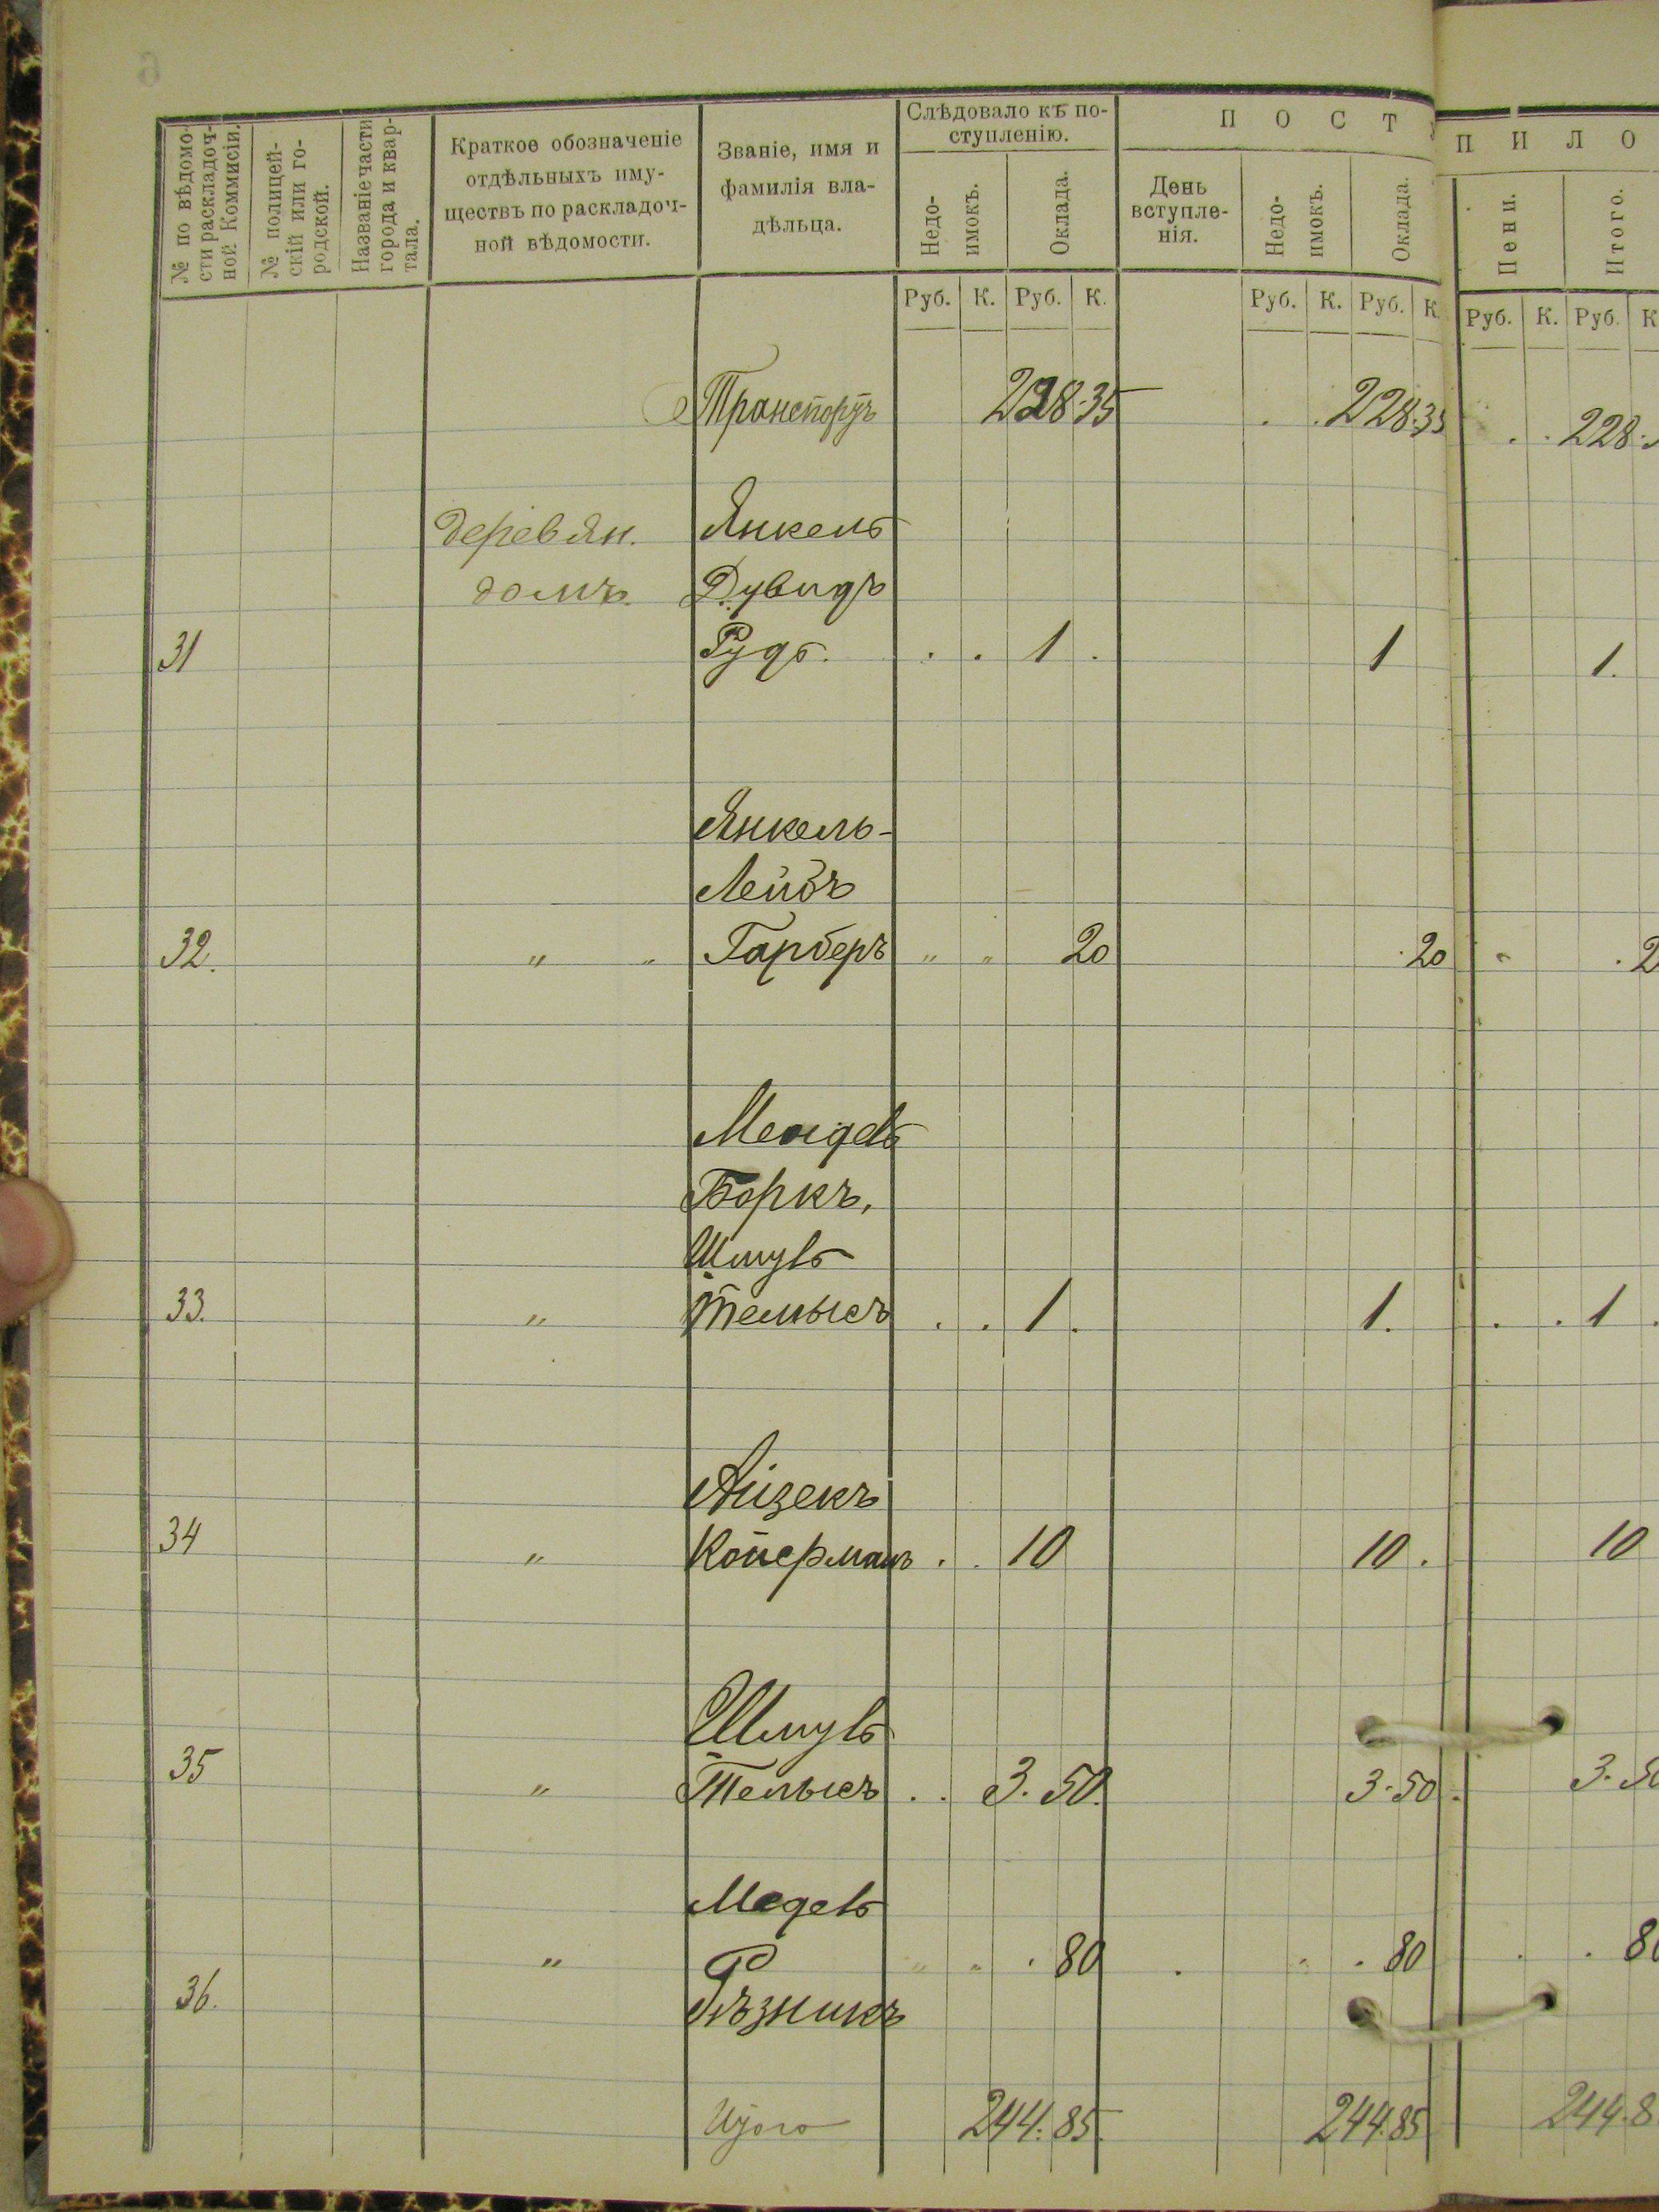 № по вѣдомо-
сти раскладоч-
ной Коммисіи.
№ полицей-
скій или го-
родской.
Названіе части
города и квар-
тала.
Краткое обозначеніе
отдѣльныхъ иму-
ществъ по раскладоч-
ной вѣдомости.
Званіе, имя и
фамилія вла-
дѣльца.
Слѣдовало къ по-
ступленію.
Недо-
имокъ.
Оклада.
П О С Т
День
вступле-
нія.
Недо-
имокъ.
Оклада.
П И Л О
Пени.
Итого.
Руб. К. Руб. К. Руб. К. Руб. К. Руб. К. Руб. К
Транспортъ 228.35 228.35 228.
деревян. Янкель
домъ. Дувидъ
31 Рудь. . . 1 . 1 1.
Янкель-
Лейбъ
32. " " Гарберъ " " 20 . 20 " . 2
Мендель
Боркъ,
Шмуль
33. " Телысъ . . 1 . 1. . . 1 .
Айзекъ
34 " Коперманъ . . 10 10 . 10
Шмуль
35 " Телысъ . . 3.50. 3.50. 3.50
Медель
" " " . 80 . " . 80 . . 80
36. Рѣзникъ
Итого 244.85. 244.85 244.8